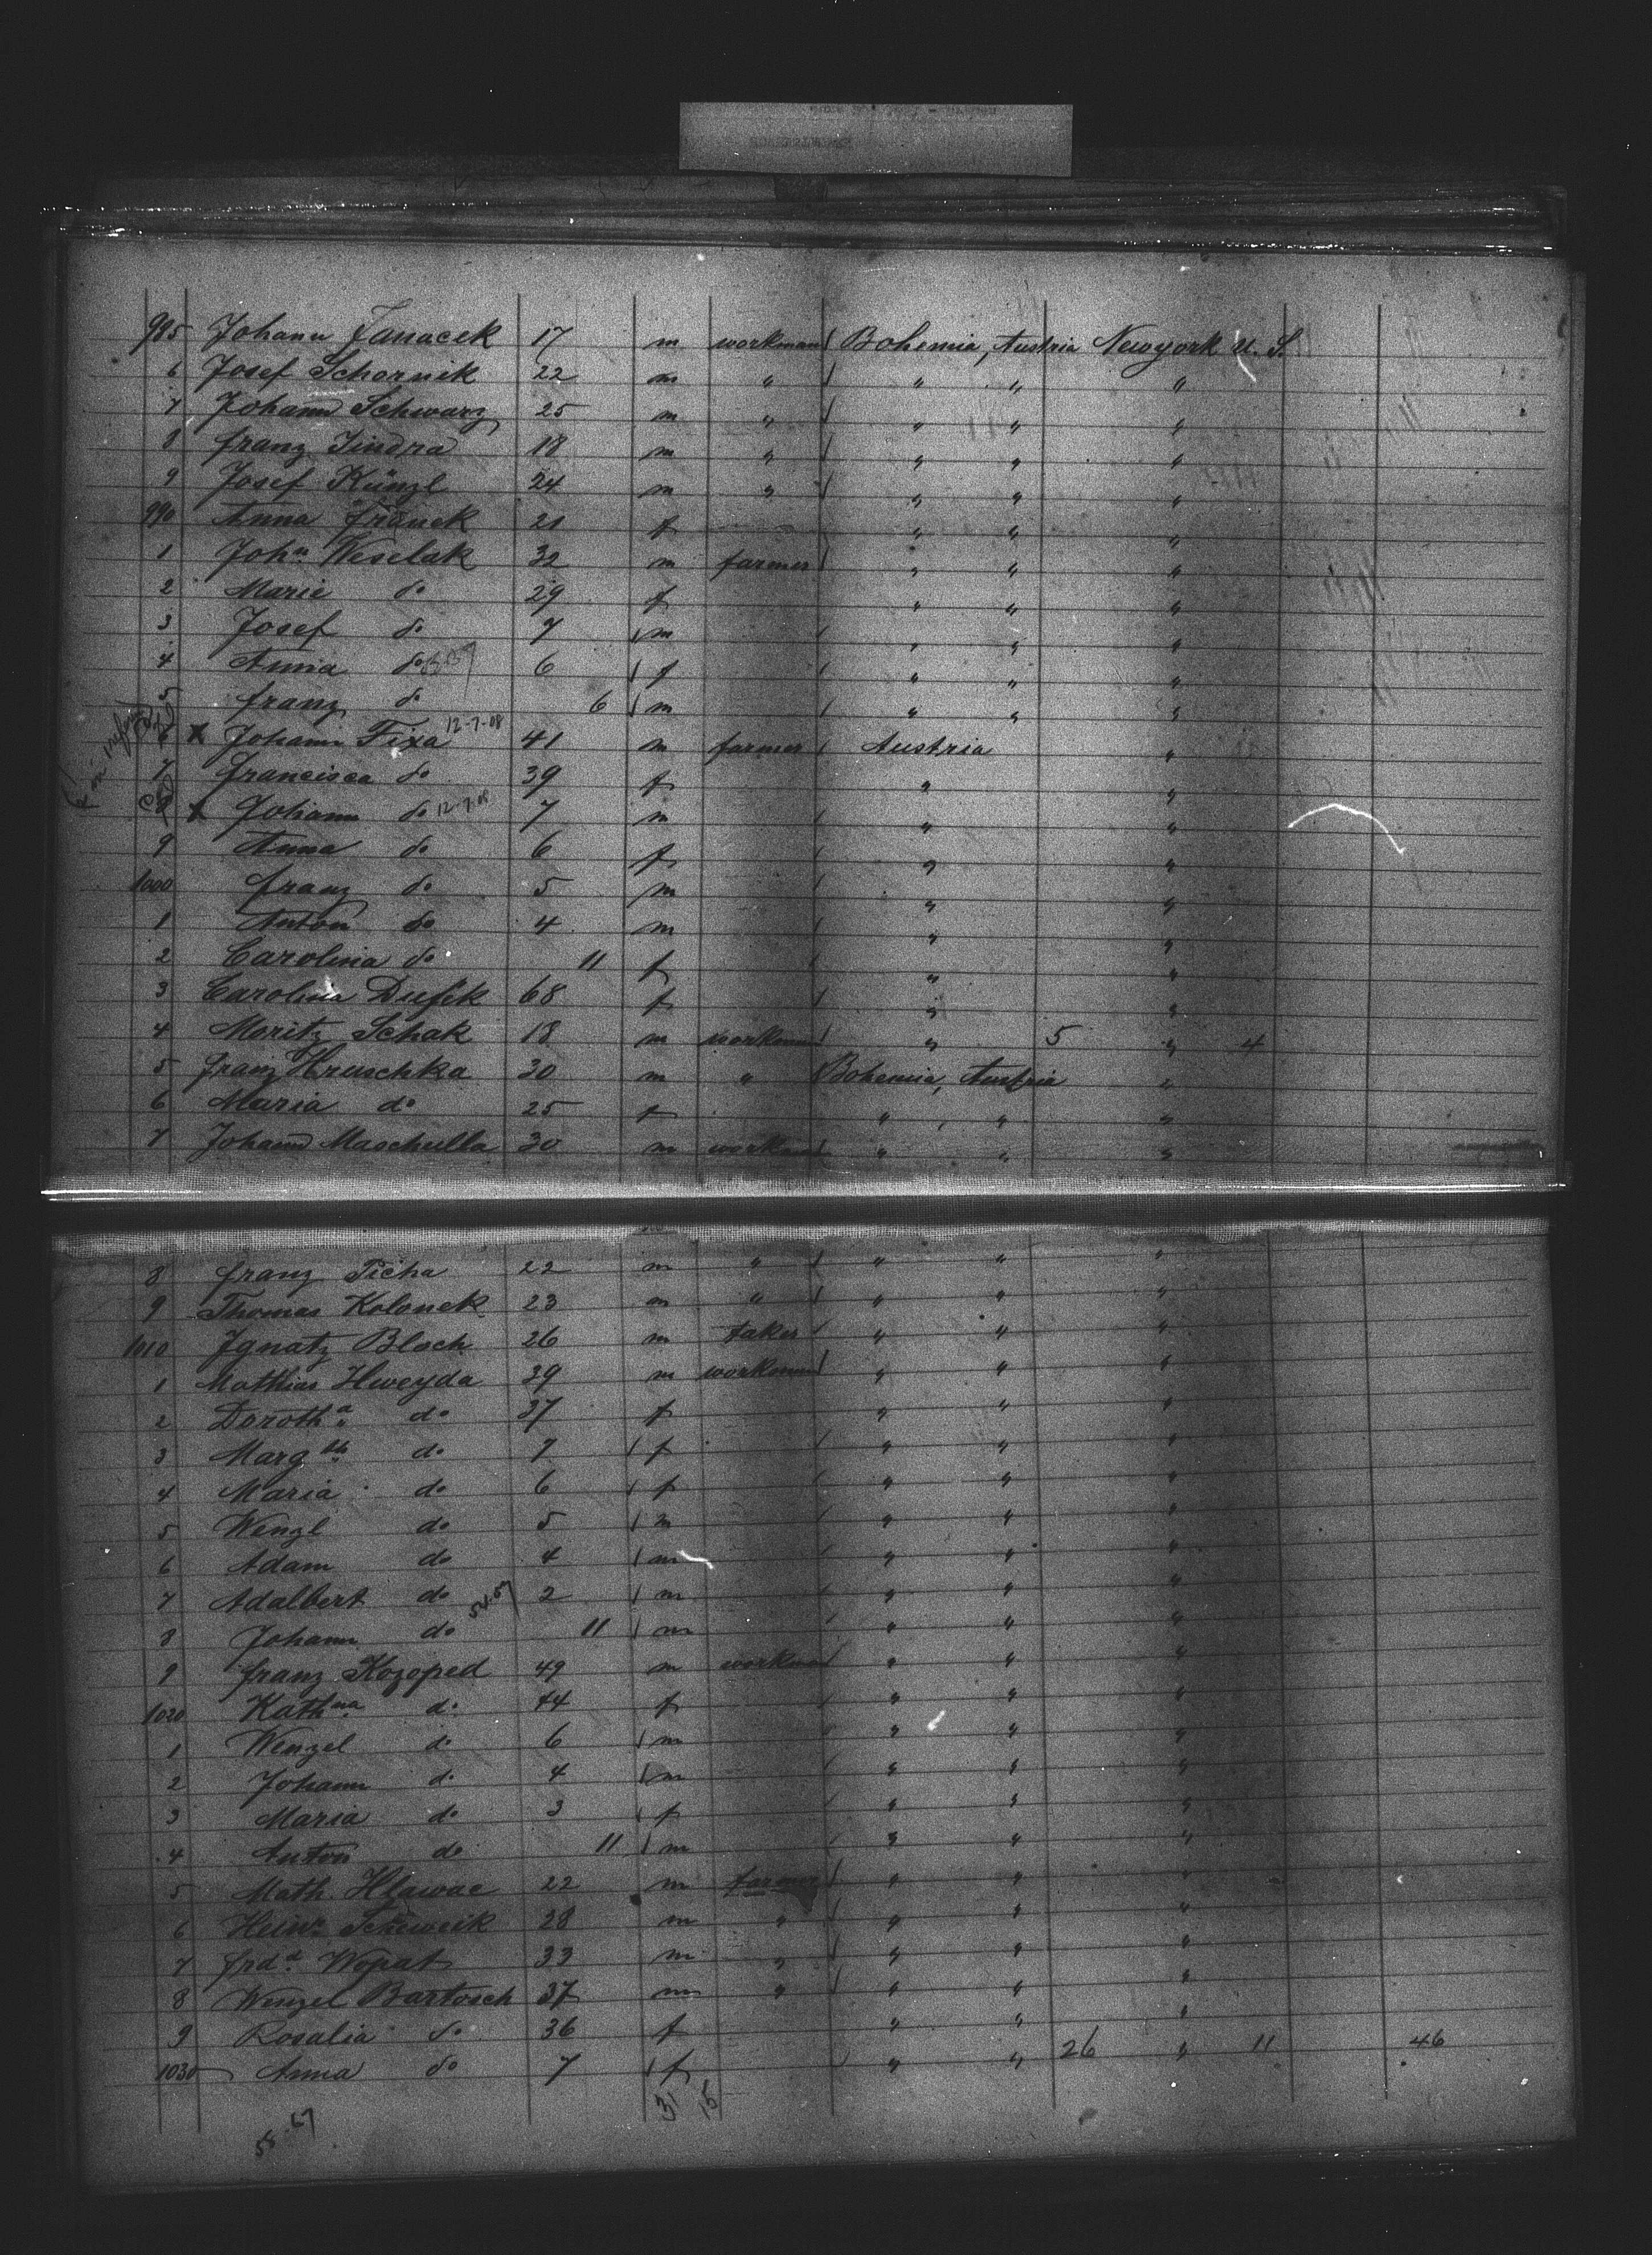 985 Johann Janacek 17 m workman Bohemia, Austria Newyork U. S.
6 Josef Schornik 22 m " " " "
7 Johann Schwarz 25 m " " " "
8 franz Jindra 18 m " " " "
9 Josef Künzl 24 m " " " "
990 Anna franek 21 f " " "
1 Johⁿ Weselak 32 m farmer " " "
2 Marie do 29 f " " "
3 Josef do 7 m " " "
4 Anna do 6 f " " "
5 franz do 6 m " " "
6 X Johann Fixa 12-7-08 41 m farmer Austria "
7 francisca do 39 f " "
8 X Johann do 12-7-08 7 m " "
9 Anna do 6 f " "
1000 franz do 5 m " "
1 Anton do 4 m " "
2 Carolina do 11 f " "
3 Carolina Dufek 68 f " "
4 Moritz Schak 18 m workman " 5 " 4
5 franz Hruschka 30 m " Bohemia, Austria "
6 Maria do 25 f " , " "
7 Johann Maschulla 30 m workman " " "
8 franz Ticha 22 m " " " "
9 Thomas Kolonek 23 m " " " "
1010 Ignatz Bloch 26 m " " "
1 Mathias Hweyda 39 m workman " " "
2 Dorothᵃ do 37 f " " "
3 Marg do 7 f " " "
4 Maria do 6 f " " "
5 Wenzl do 5 m " " "
6 Adam do 4 m " " "
7 Adalbert do 2 m " " "
8 Johann do 11 m " " "
9 franz Kozoped 49 m workman " " "
1020 Kathⁿᵃ do 44 f " " "
1 Wenzel do 6 m " " "
2 Johann do 4 m " " "
3 Maria do 3 f " " "
4 Anton do 11 m " " "
5 Math. Hlawac 22 m farmer " " "
6 Heinr 28 m " " " "
7 frdᵈ Wopat 33 m " " " "
8 Wenzel Bartosch 37 m " " " "
9 Rosalia do 36 f " " "
1030 Anna do 7 f " " 26 " 11 46
31 15